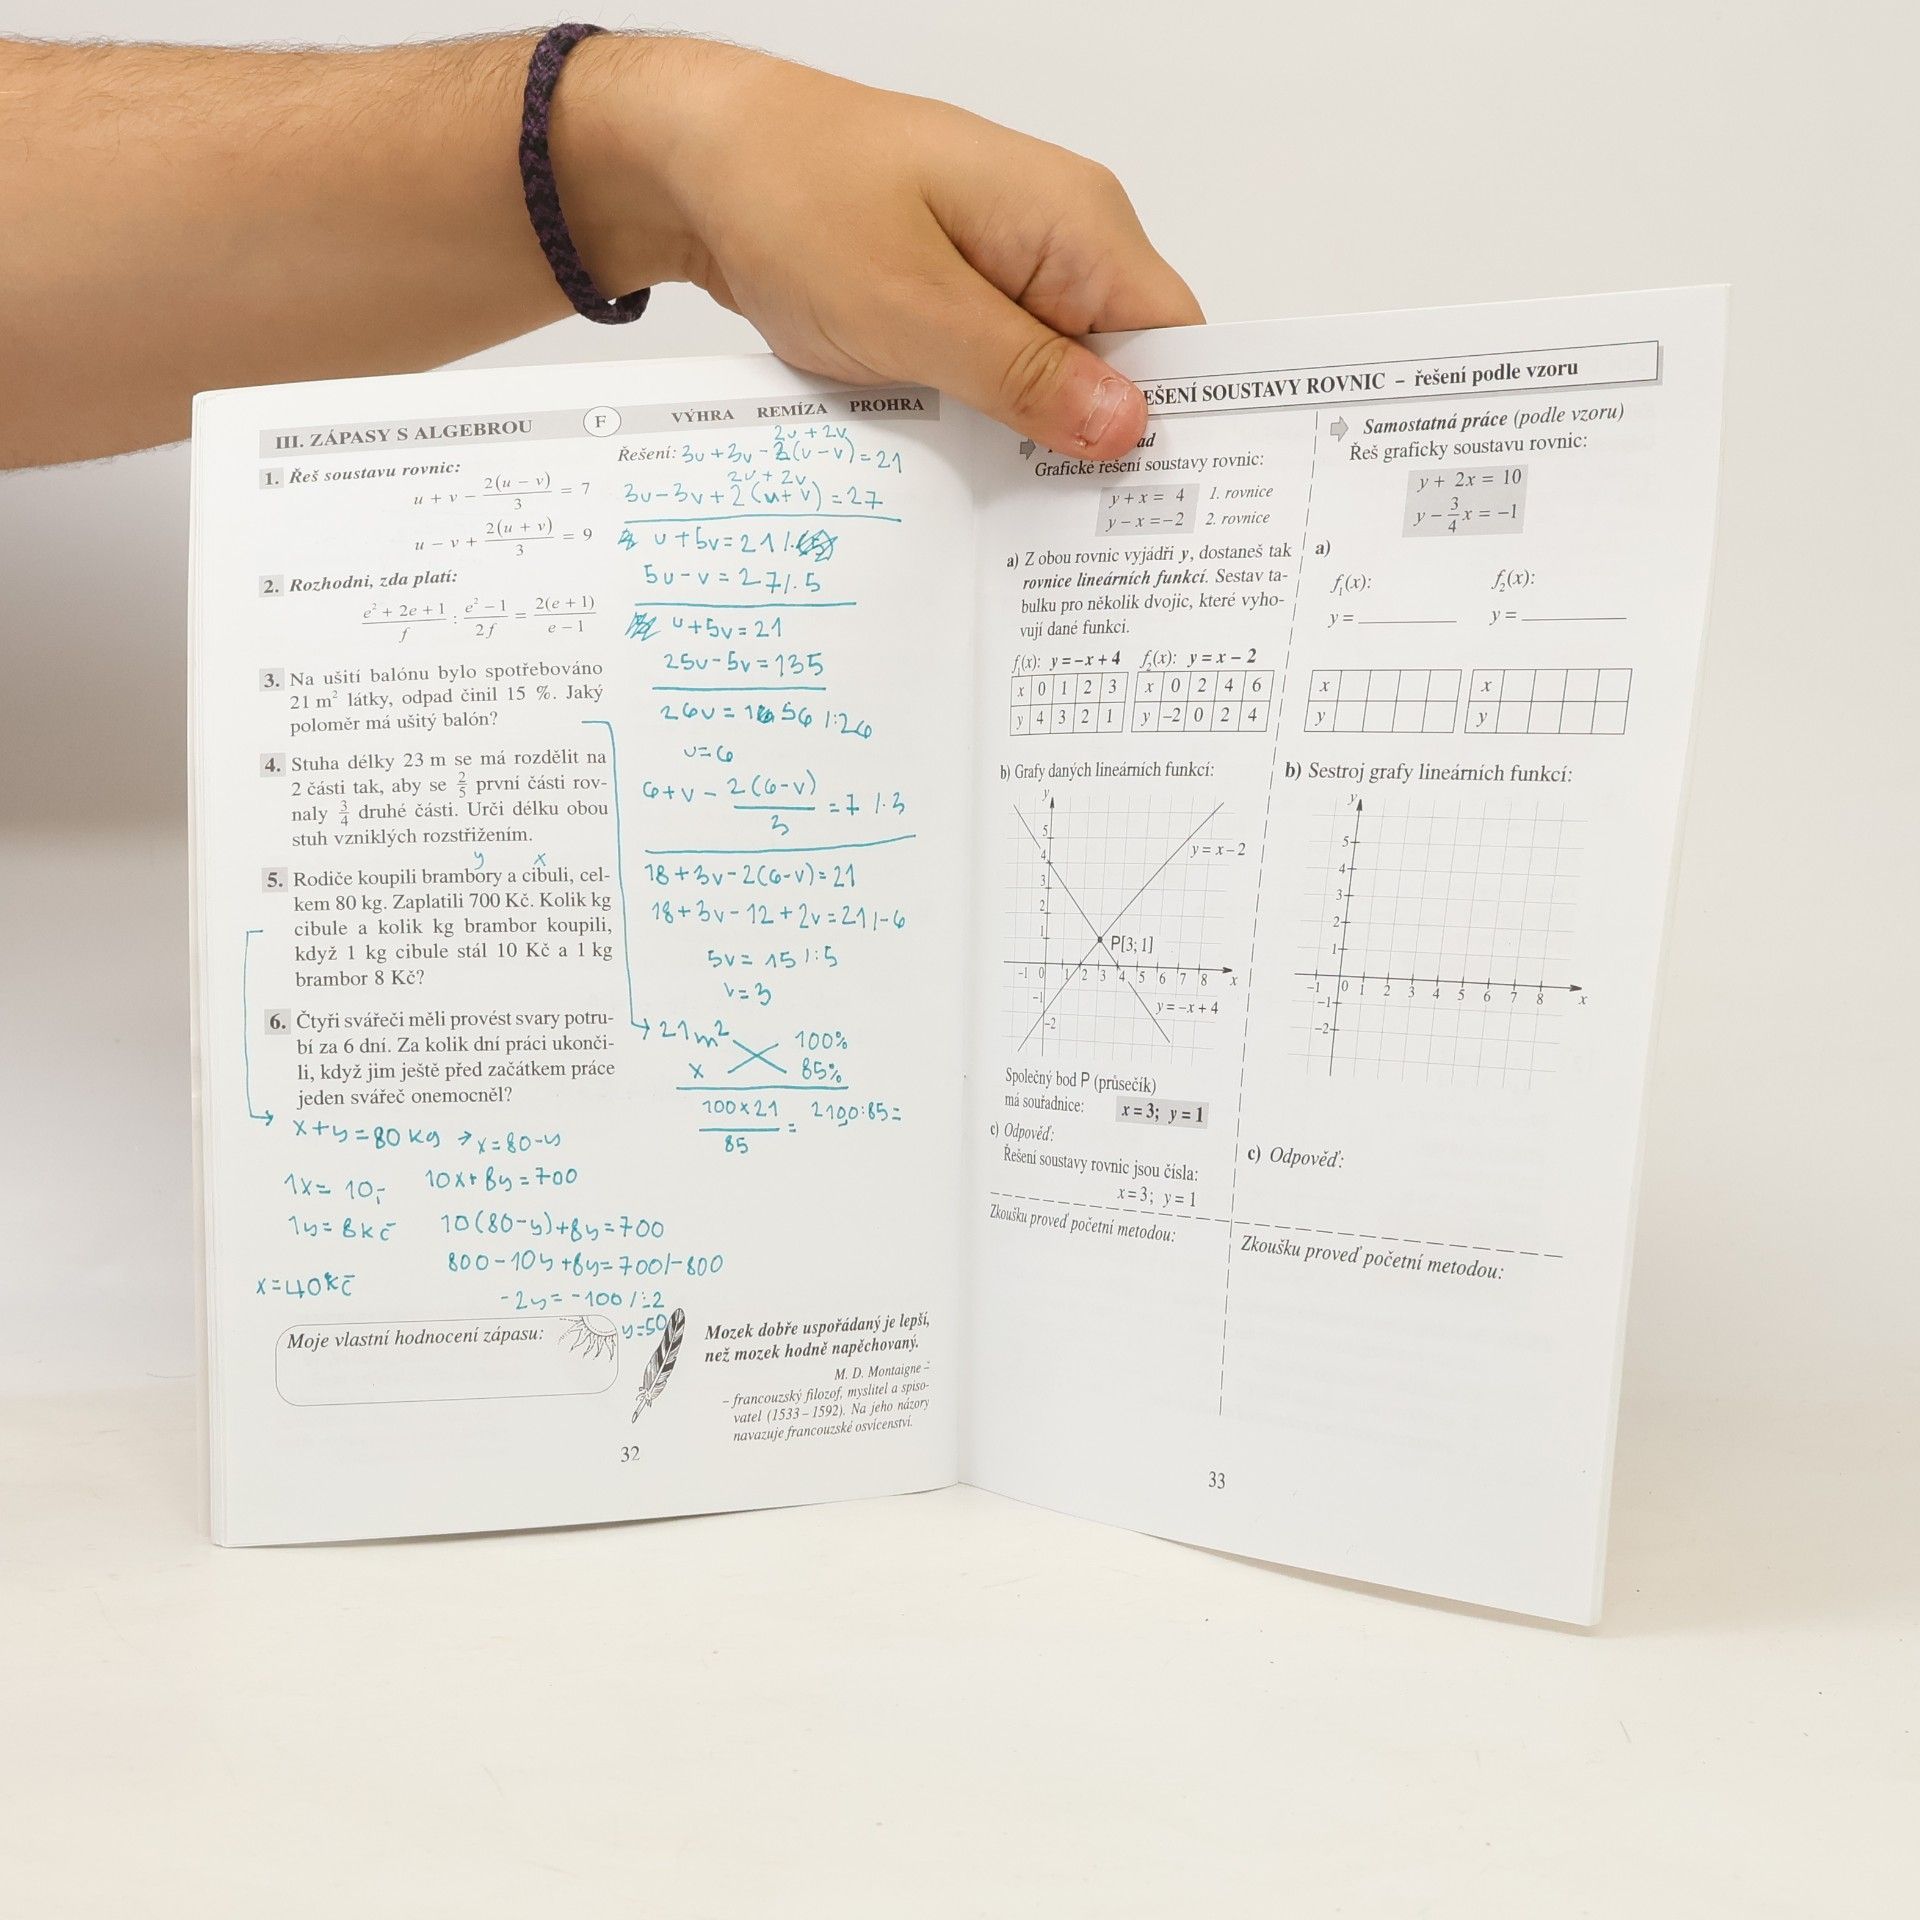 III. ZÁPASY S ALGEBROU F VÝHRA REMÍZA PROHRA
1. Řeš soustavu rovnic:
u + v − 2(u − v)/3 = 7
u − v + 2(u + v)/3 = 9
2. Rozhodni, zda platí:
e² + 2e + 1/f : e² − 1/2f = 2(e + 1)/e − 1
3. Na ušití balónu bylo spotřebováno
21 m² látky, odpad činil 15 %. Jaký
poloměr má ušitý balón?
4. Stuha délky 23 m se má rozdělit na
2 části tak, aby se 2/5 první části rov-
naly 3/4 druhé části. Urči délku obou
stuh vzniklých rozstřižením.
y x
5. Rodiče koupili brambory a cibuli, cel-
kem 80 kg. Zaplatili 700 Kč. Kolik kg
cibule a kolik kg brambor koupili,
když 1 kg cibule stál 10 Kč a 1 kg
brambor 8 Kč?
6. Čtyři svářeči měli provést svary potru-
bí za 6 dní. Za kolik dní práci ukonči-
li, když jim ještě před začátkem práce
jeden svářeč onemocněl?
x+y=80kg → x=80-y
1x= 10,- 10x+8y=700
1y=8kč 10(80-y)+8y=700
800-10y+8y=700/-800
x=40kč
-2y=-100/:-2
y=50
Moje vlastní hodnocení zápasu:
2u + 2v
Řešení: 3u+3v-2(u-v)=21
2u + 2v
3u-3v+2(u+v)=27
u+5v=21/.
5u-v=27/.5
u+5v=21
25u-5v=135
26u=156/:26
u=6
6+v-2(6-v)/3=7/.3
18+3v-2(6-v)=21
18+3v-12+2v=21/-6
5v=15/:5
v=3
→21m² 100%
x 85%
100x21/85 = 2100:85=
Mozek dobře uspořádaný je lepší,
než mozek hodně napěchovaný.
M. D. Montaigne –
– francouzský filozof, myslitel a spiso-
vatel (1533 – 1592). Na jeho názory
navazuje francouzské osvícenství.
32
EŠENÍ SOUSTAVY ROVNIC – řešení podle vzoru
ad
Grafické řešení soustavy rovnic:
y + x = 4 1. rovnice
y − x = −2 2. rovnice
a) Z obou rovnic vyjádři y, dostaneš tak
rovnice lineárních funkcí. Sestav ta-
bulku pro několik dvojic, které vyho-
vují dané funkci.
f₁(x): y = −x + 4 f₂(x): y = x − 2
x 0 1 2 3 x 0 2 4 6
y 4 3 2 1 y −2 0 2 4
b) Grafy daných lineárních funkcí:
y
5
4
3
2
1
y = x − 2
P[3; 1]
−1 0 1 2 3 4 5 6 7 8 x
−1
−2
y = −x + 4
Společný bod P (průsečík)
má souřadnice: x = 3; y = 1
c) Odpověď:
Řešení soustavy rovnic jsou čísla:
x = 3; y = 1
Zkoušku proveď početní metodou:
Samostatná práce (podle vzoru)
Řeš graficky soustavu rovnic:
y + 2x = 10
y − 3/4 x = −1
a)
f₁(x): f₂(x):
y = y =
x x
y y
b) Sestroj grafy lineárních funkcí:
y
5
4
3
2
1
−1 0 1 2 3 4 5 6 7 8 x
−1
−2
c) Odpověď:
Zkoušku proveď početní metodou:
33